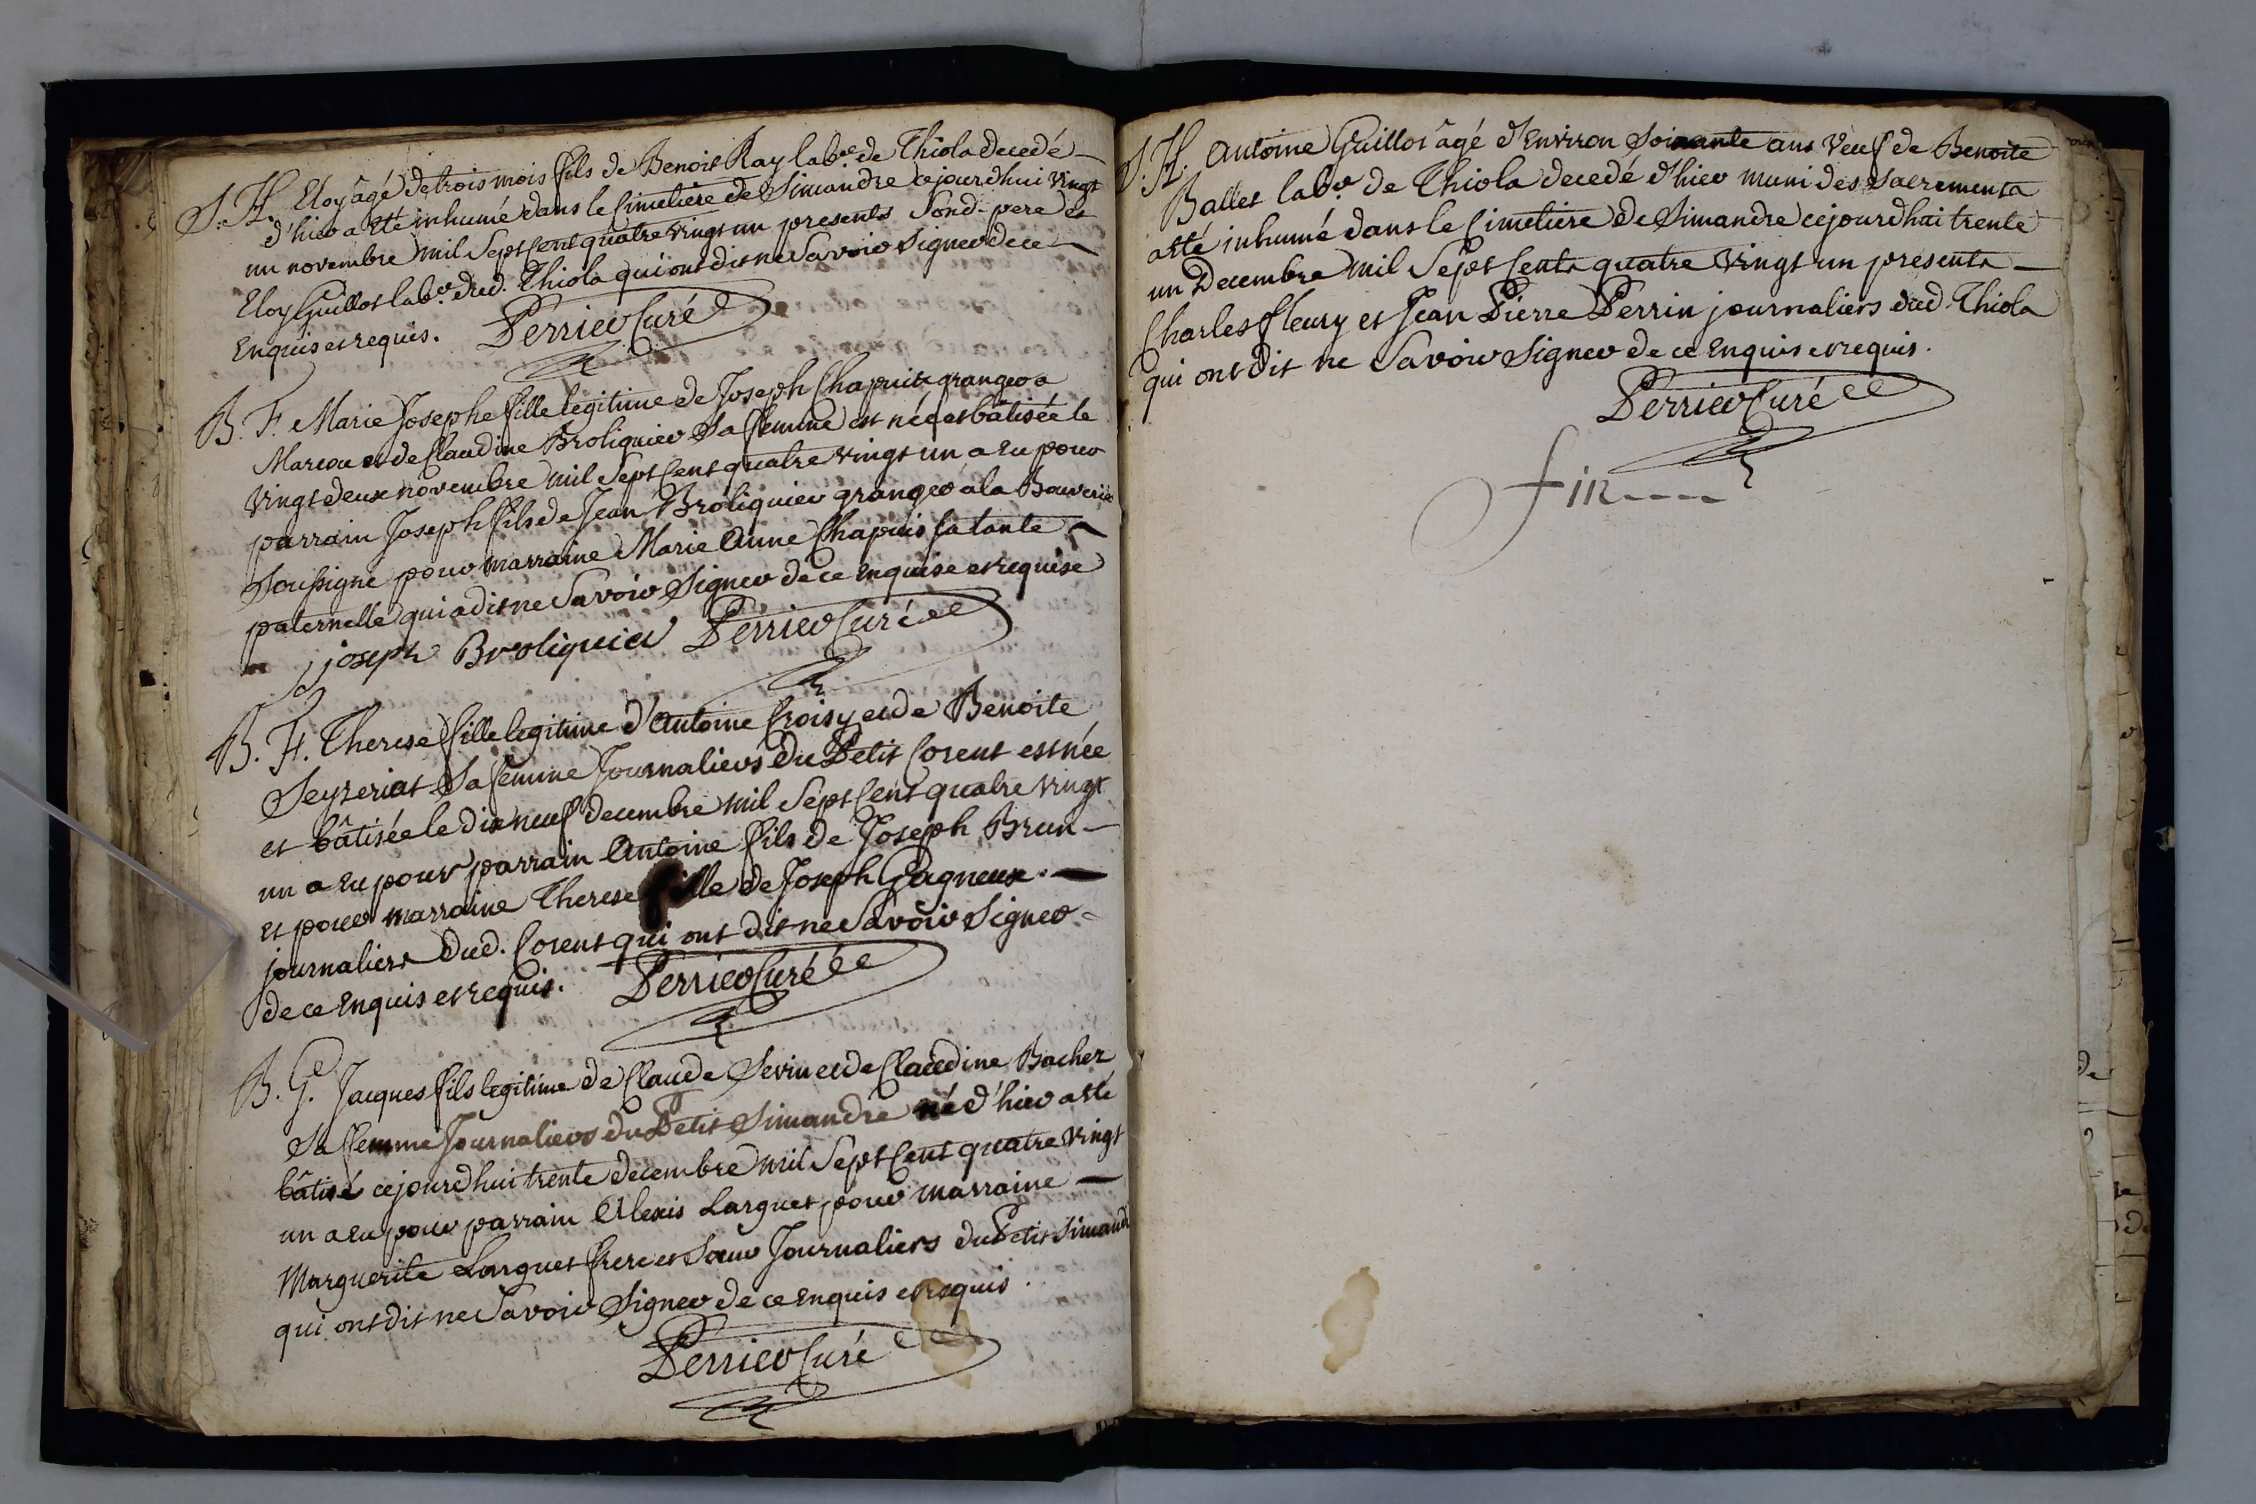 S. H. Eloy âgé de trois mois fils de Benoit Ray lab.r de Thiola decedé
d'hier a eté inhumé dans le Cimetiere de Simandre cejourdhui vingt
un novembre mil Sept Cent quatre vingt un presents Sond. pere et
Eloy Guillot lab.r dud. Thiola qui ont dit ne Savoir Signer de ce
Enquis et requis. Perrier Curé
B. F. Marie Josephe fille legitime de Joseph Chapuis granger a
Marcou et de Claudine Broliquier Sa femme est née et bâtisée le
vingt deux novembre mil Sept Cent quatre vingt un a eu pour
parrain Joseph fils de Jean Broliquier granger a la Bouverie
Soussigné pour marraine Marie Anne Chapuis sa tante
paternelle qui a dit ne Savoir Signer de ce enquise et requise
joseph Broliquier Perrier Curé
B. F. Therese fille legitime d'Antoine Croisy et de Benoite
Seyzeriat Sa femme Journaliers du Petit Corent est née
et bâtisée le dix neuf decembre mil Sept Cent quatre vingt
un a eu pour parrain Antoine fils de Joseph Brun
et pour marraine Therese fille de Joseph Gagneux
journaliers dud. Corent qui ont dit ne Savoir Signer
de ce enquis et requis. Perrier Curé
B. G. Jacques fils legitime de Claude Sevin et de Claudine Bacher
Sa femme Journaliers du Petit Simandre né d'hier a eté
bâtisé cejourdhui trente decembre mil Sept Cent quatre vingt
un a eu pour parrain Alexis Larguet pour marraine
Marguerite Larguet frere et Soeur Journaliers du Petit Simand
qui ont dit ne Savoir Signer de ce enquis et requis.
Perrier Curé
S. H. Antoine Guillot âgé d'Environ Soixante ans veuf de Benoite
Ballet lab.r de Thiola decedé d'hier muni des Sacrements
a eté inhumé dans le Cimetiere de Simandre cejourdhui trente
un Decembre mil Sept Cents quatre vingt un presents
Charles Fleury et Jean Pierre Perrin journaliers dud. Thiola
qui ont dit ne Savoir Signer de ce enquis et requis.
Perrier Curé
fin